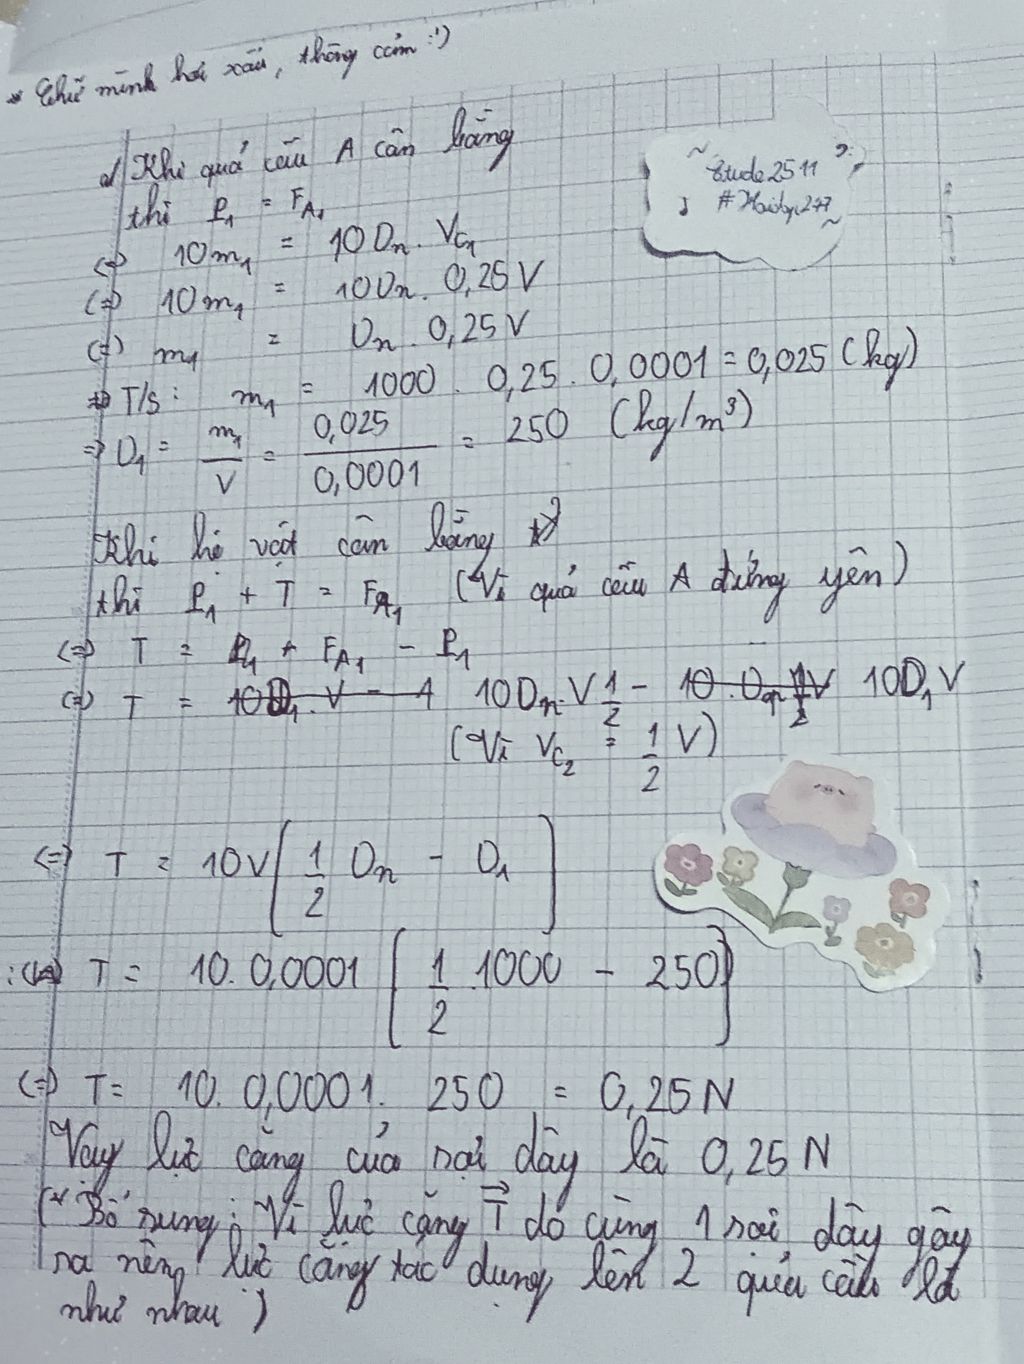 * Chữ mình hơi xấu, thông cảm :')
~ Etude2511
♩ #Haidyc247 ~
a/ Khi quả cầu A cân bằng
thì P₁ = F_A₁
<=> 10m₁ = 10Dₙ . V_C₁
<=> 10m₁ = 10Dₙ . 0,25V
<=> m₁ = Dₙ . 0,25V
=> T/s: m₁ = 1000 . 0,25 . 0,0001 = 0,025 (kg)
=> D₁ = m₁/V = 0,025/0,0001 = 250 (kg/m³)
Khi hệ vật cân bằng
thì P₁ + T = F_A₁ (Vì quả cầu A đứng yên)
<=> T = F_A₁ - P₁
<=> T = 10Dₙ.V 1/2 - 10D₁V
(Vì V_C₂ = 1/2 V)
<=> T = 10V[1/2 Dₙ - D₁]
T = 10.0,0001 [1/2 .1000 - 250]
<=> T = 10. 0,0001. 250 = 0,25N
Vậy lực căng của sợi dây là 0,25N
(* Bổ sung: Vì lực căng T⃗ do cùng 1 sợi dây gây
ra nên lực căng tác dụng lên 2 quả cầu là
như nhau)